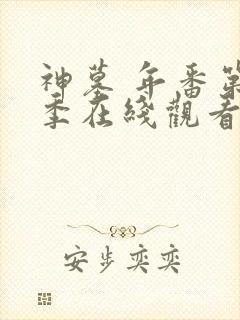 神墓 年番第
季在綫觀看
安步奕奕